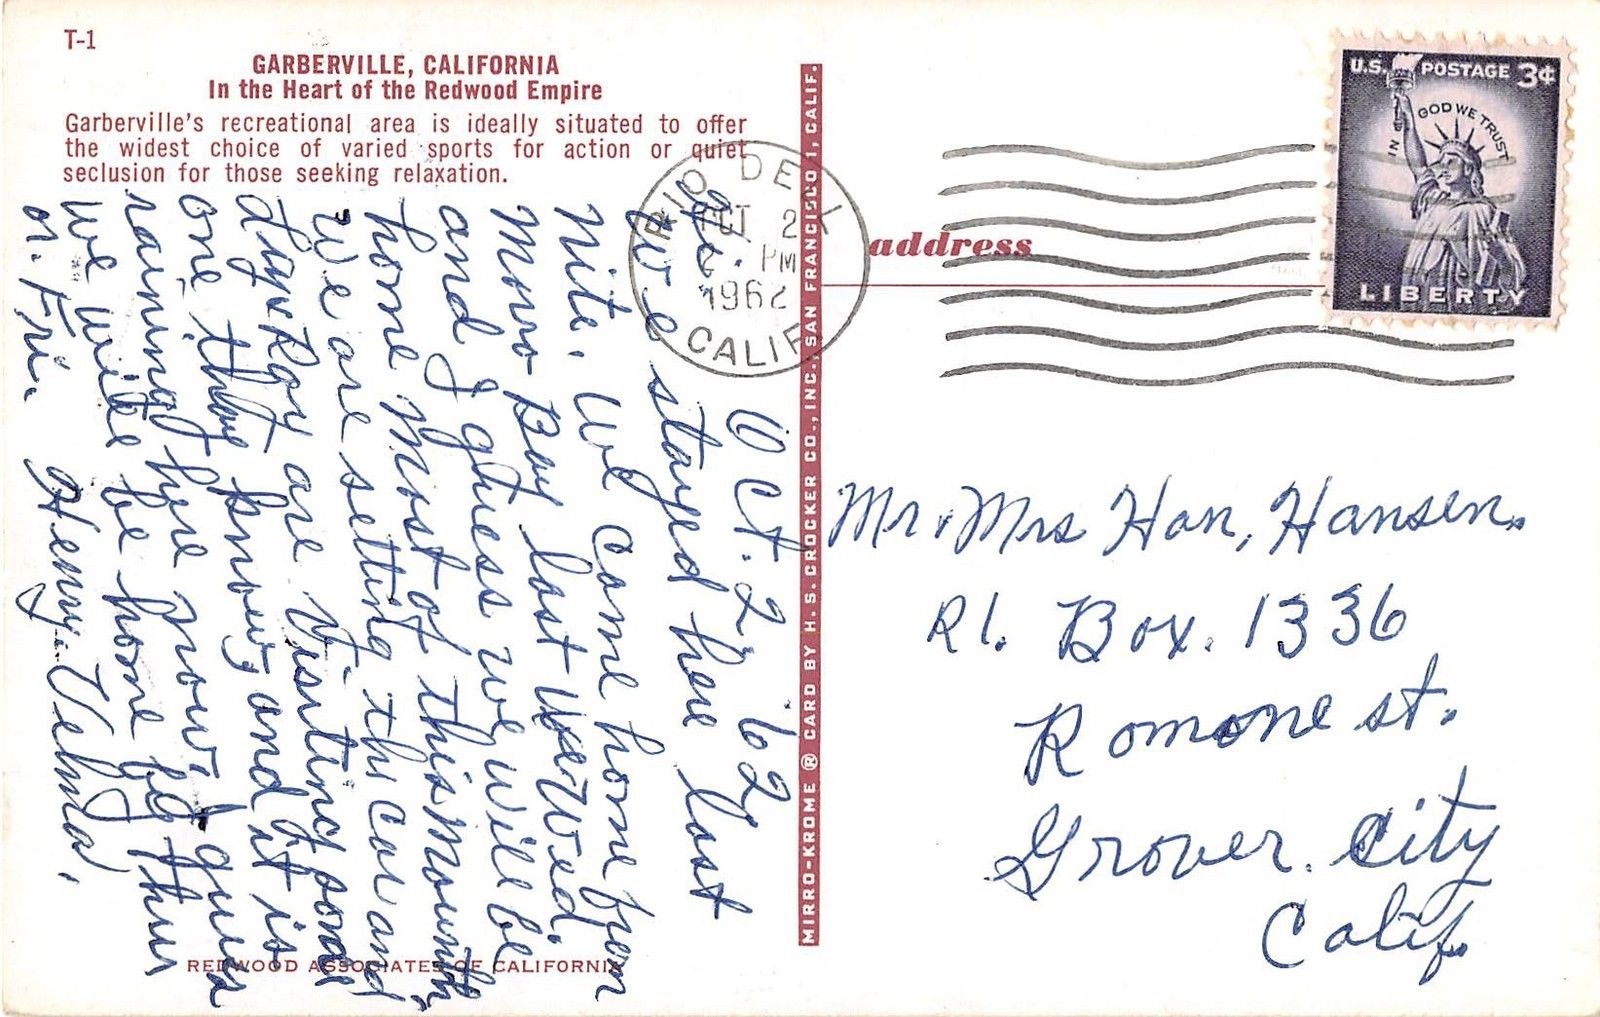 T-1
GARBERVILLE, CALIFORNIA
In the Heart of the Redwood Empire
Garberville's recreational area is ideally situated to offer
the widest choice of varied sports for action or quiet
seclusion for those seeking relaxation.
Oct. 2, '62
Hi.
We stayed here last
Nite. We came home from
Morro Bay last Wed,
and I ghuess we will be
home Most of this Mounth,
We are setting the car and
are Visiting some
one thay know, and it is
rainning here now. I guess
we will be home by thur
or. Fri.
Henry. Velma.
REDWOOD ASSOCIATES OF CALIFORNIA
MIRRO-KROME ® CARD BY H. S. CROCKER CO., INC., SAN FRANCISCO 1, CALIF.
RIO DELL
OCT 2
PM
1962
CALIF
U.S. POSTAGE 3¢
IN GOD WE TRUST
LIBERTY
address
Mr. Mrs Han, Hansen.
Rl. Box. 1336
Romone st.
Grover. City
Calif.